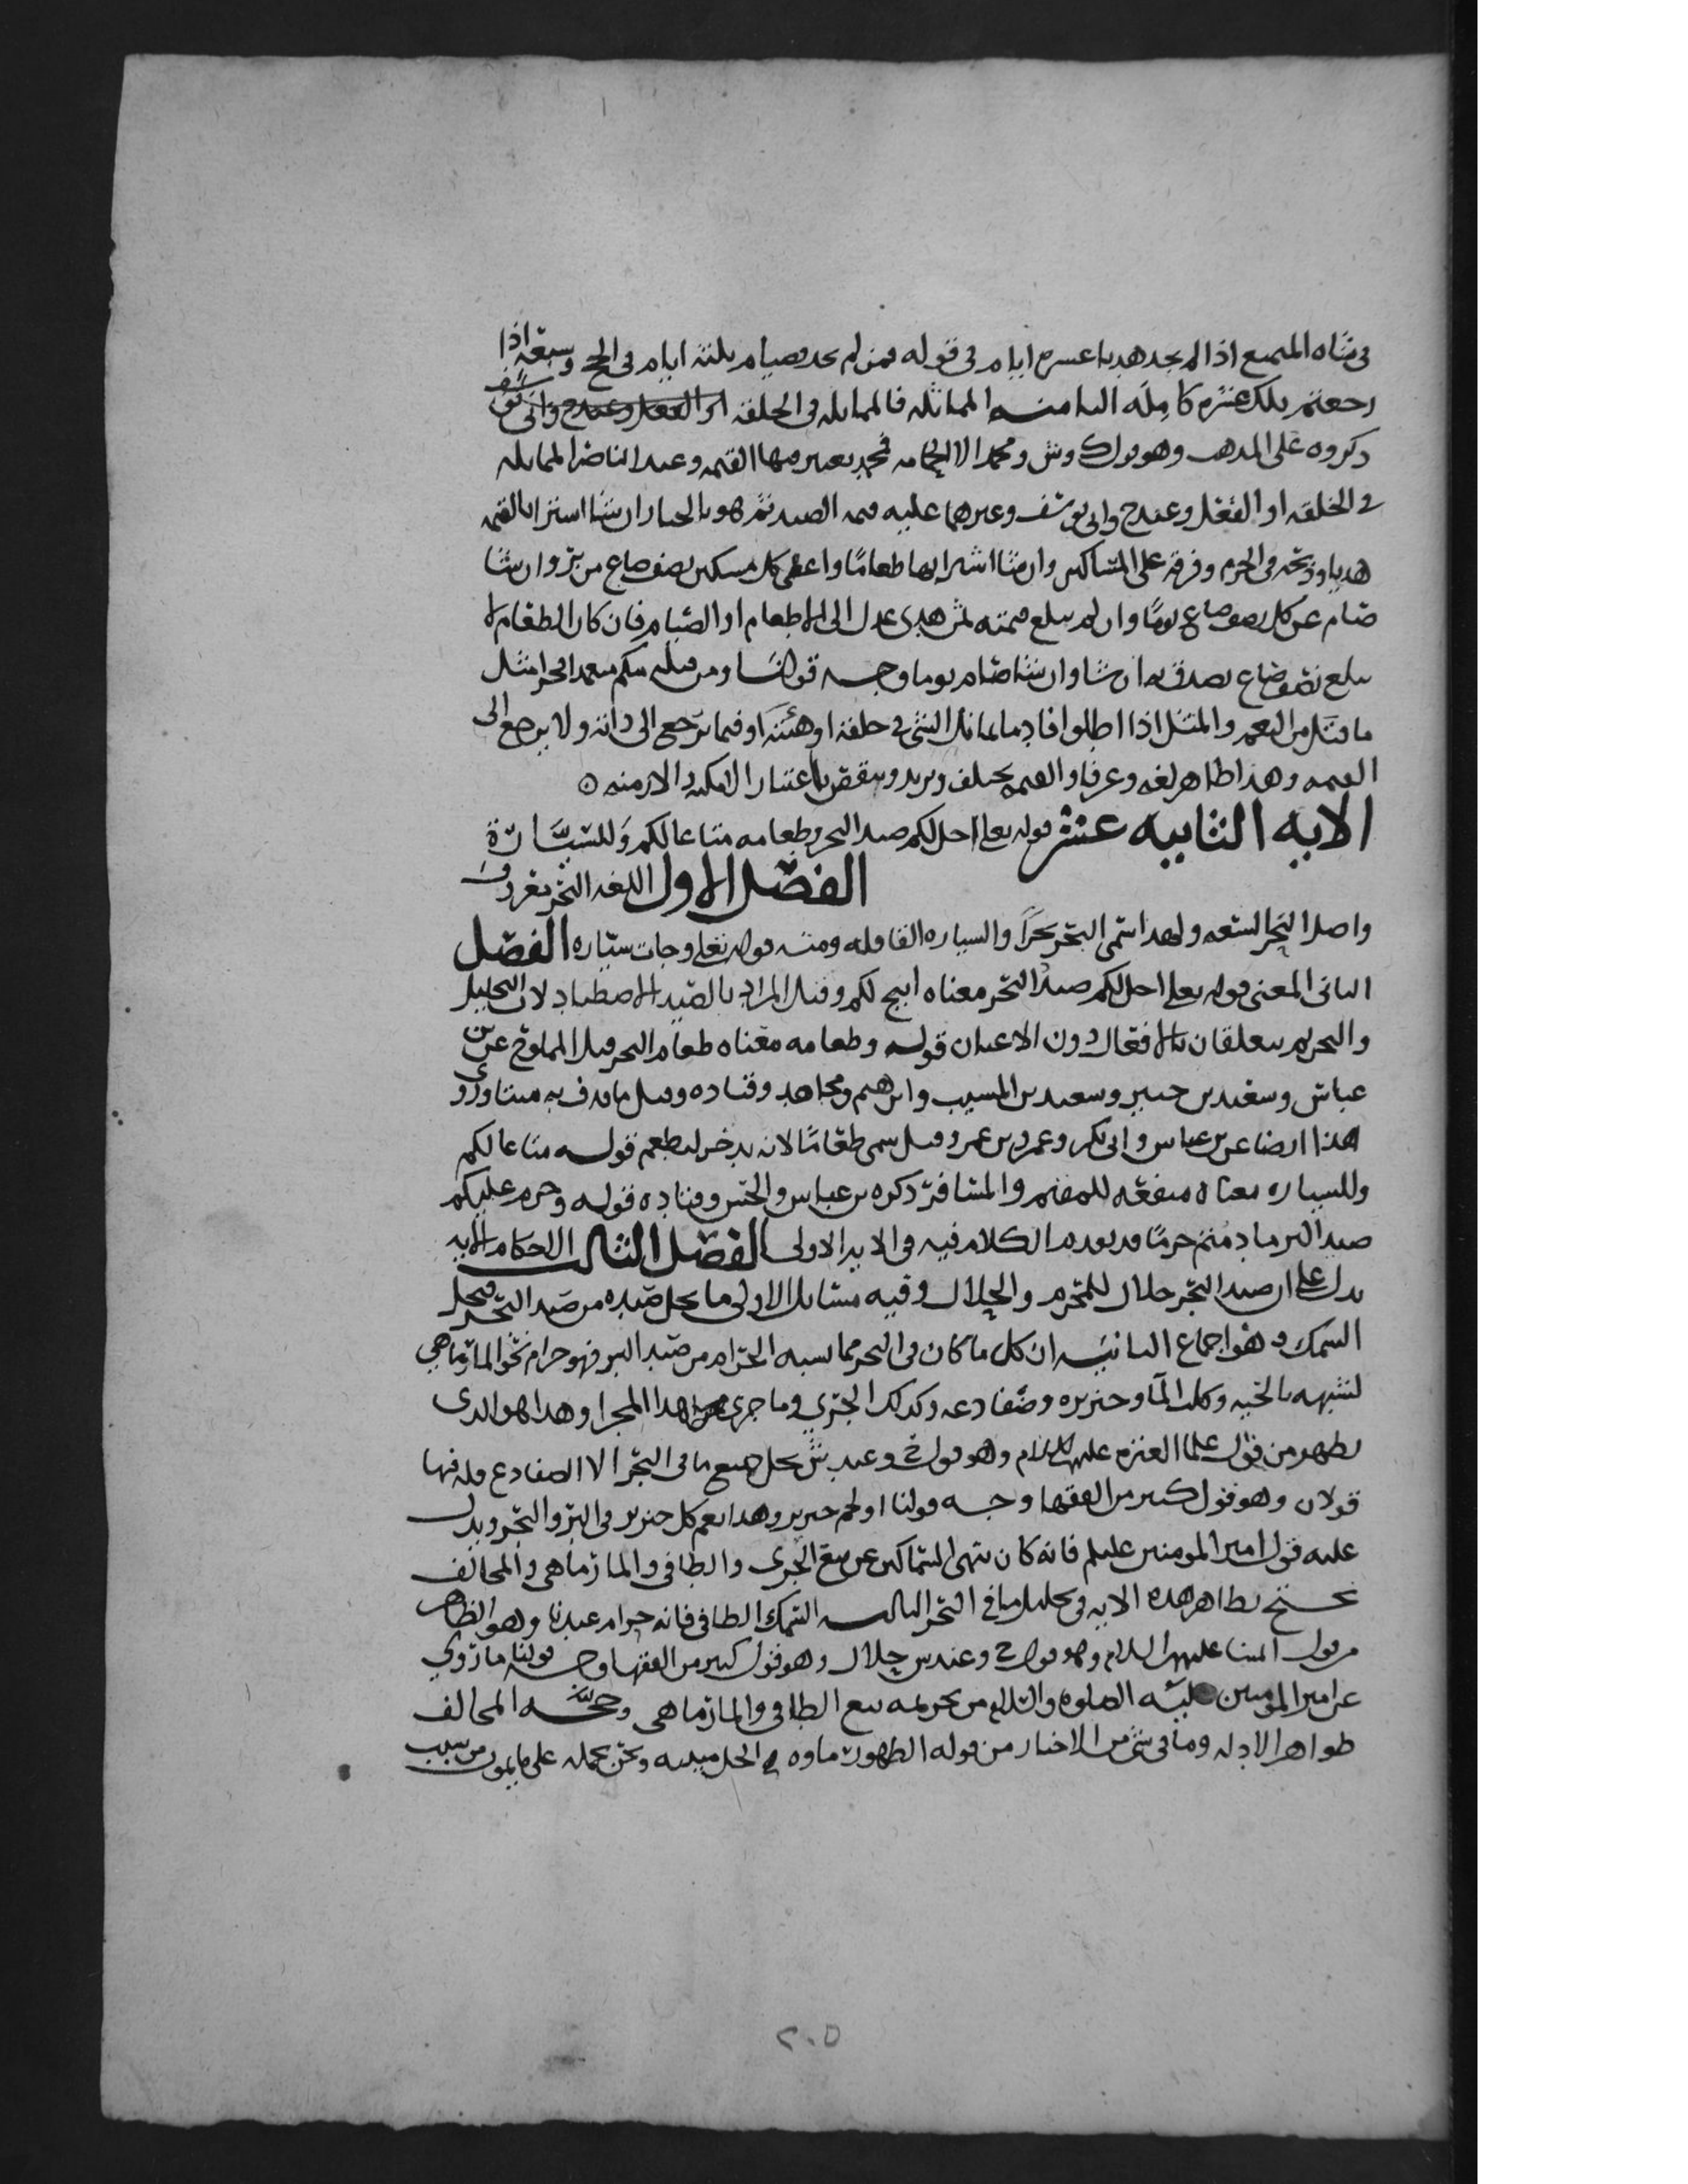 في شاه المتمتع اذا لم يجد هديا عشره ايام في قوله فمن لم يجد فصيام ثلثه ايام في الحج وسبعه اذا
رجعتم تلك عشره كامله الثامنه المماثله فالمماثله في الخلقه او الفعل وعندح وابي يوسف
ذكروه على المذهب وهو قول ك وش ومحمد الا الحمامه فمحمد يعتبر فيها القيمه وعند الناصر المماثله
في الخلقه او الفعل وعندح وابي يوسف وغيرهما عليه قيمه الصيد ثم هو بالخيار ان شا اشترا بالقيمه
هديا وذبحه في الحرم وفرقه على المساكين وان شا اشترا بها طعاما واعطى كل مسكين نصف صاع من بر وان شا
صام عن كل نصف صاع يوما وان لم يبلغ قيمته ثمن هدي عدل الى الاطعام او الصيام فان كان الطعام لا
يبلغ نصف صاع تصدق به ان شا وان شا صام يوما وجه قولنا ومن قتله منكم متعمدا فجزا مثل
ما قتل من النعم والمثل اذا اطلق افاد ما يماثل الشي في خلقه او هيئه او فيما يرجع الى ذاته ولا يرجع الى
القيمه وهذا ظاهر لغه وعرفا والقيمه تختلف وتزيد وتنقص باعتبار الامكنه والازمنه ه
الايه الثانيه عشر قوله تعلى احل لكم صيد البحر وطعامه متاعا لكم وللسيارة
الفصل الاول اللغه البحر معروف
واصل البحر السعه ولهذا سمي البحر بحرا والسياره القافله ومنه قوله تعلى وجات سياره الفصل
الثاني المعنى قوله تعلى احل لكم صيد البحر معناه ابيح لكم وقيل المراد بالصيد الاصطياد لان التحليل
والتحريم يتعلقان بالافعال دون الاعيان قوله وطعامه معناه طعام البحر قيل المملوح عن بن
عباس وسعيد بن جبير وسعيد بن المسيب وابرهيم ومجاهد وقتاده وقيل ما قذف به ميتا وروي
هذا ايضا عن بن عباس وابي بكر وعمر وبن عمر وقيل سمي طعاما لانه يدخر ليطعم قوله متاعا لكم
وللسياره معناه منفعه للمقيم والمسافر ذكره بن عباس والحسن وقتاده قوله وحرم عليكم
صيد البر ما دمتم حرما قد تقدم الكلام فيه في الايه الاولى الفصل الثالث الاحكام الايه
تدل على ان صيد البحر حلال للمحرم والحلال وفيه مسائل الاولى ما يحل صيده من صيد البحر فيحل
السمك وهو اجماع الثانيه ان كل ما كان في البحر مما يشبه الحرام من صيد البر فهو حرام نحو المارماهي
لشبهه بالحيه وكلب الما وخنزيره وضفادعه وكذلك الجري وما جرى هذا المجرا وهذا هو الذي
يظهر من قول علما العتره عليهم السلام وهو قول ح وعند ش يحل جميع ما في البحر الا الضفادع فله فيها
قولان وهو قول كثير من الفقها وجه قولنا او لحم خنزير وهذا يعم كل خنزير في البر والبحر ويدل
عليه قول امير المومنين عليلم فانه كان ينهى السماكين عن بيع الجري والطافي والمارماهي والمخالف
يحتج بظاهر هذه الايه في تحليل ما في البحر الثالثه السمك الطافي فانه حرام عندنا وهو الظاهر
من قول ائمتنا عليهم السلام وهو قول ح وعند س حلال وهو قول كثير من الفقها وجه قولنا ما روي
عن امير المومنين عليه الصلوه والسلام من تحريمه بيع الطافي والمارماهي وحجه المخالف
ظواهر الادله وما في شي من الاخبار من قوله الطهور ماوه الحل ميتته ونحن نحمله على ما يموت من سبب
٢٠٥